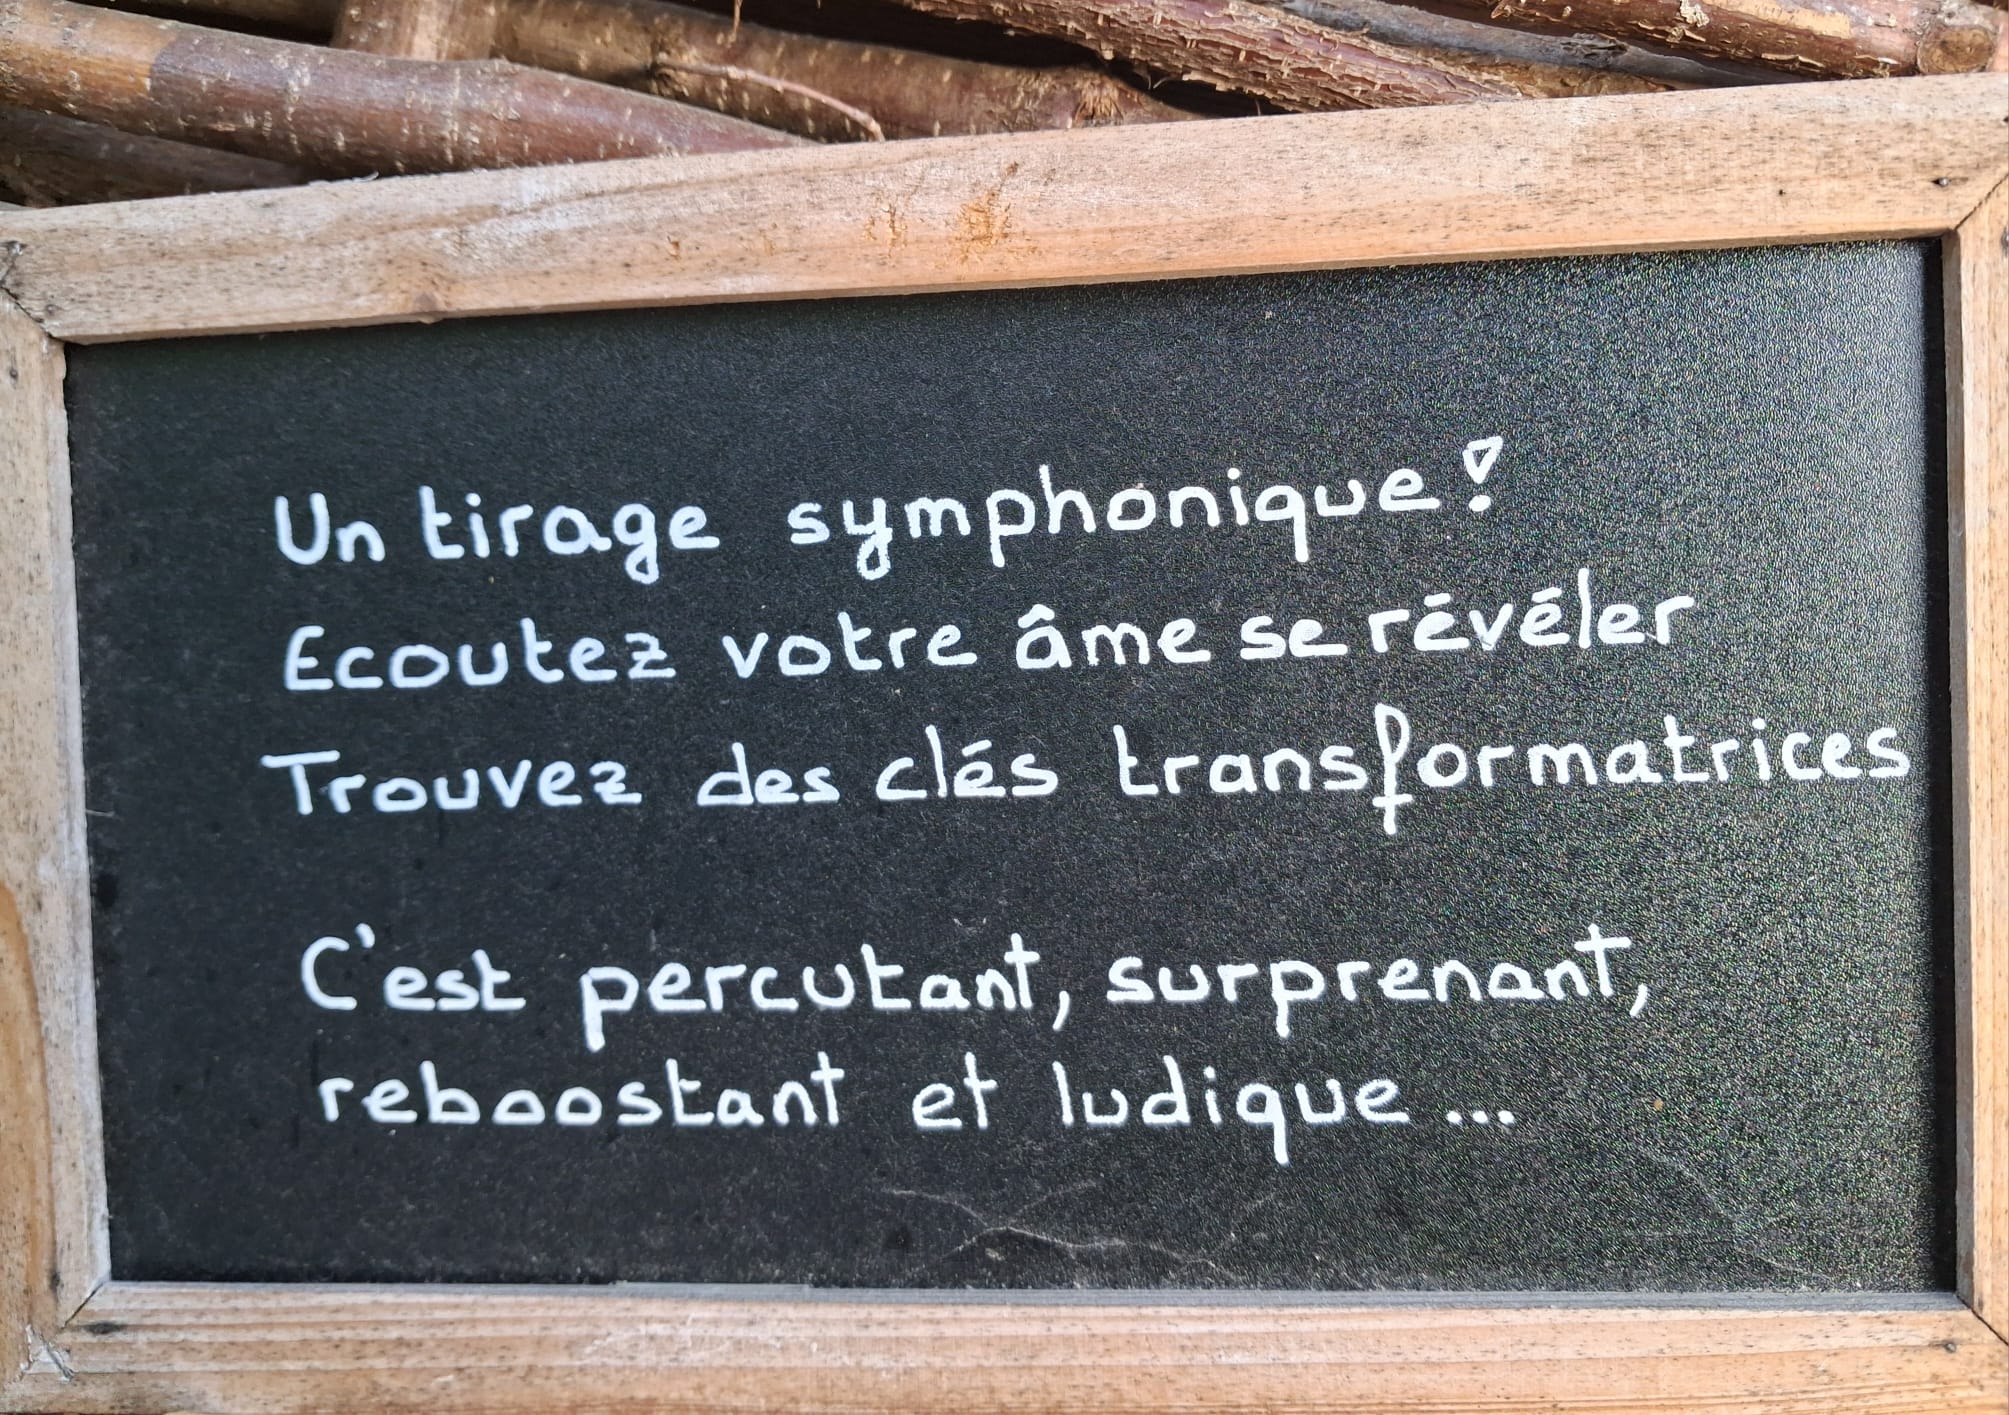 Un tirage symphonique !
Ecoutez votre âme se révéler
Trouvez des clés transformatrices
C'est percutant, surprenant,
reboostant et ludique ...